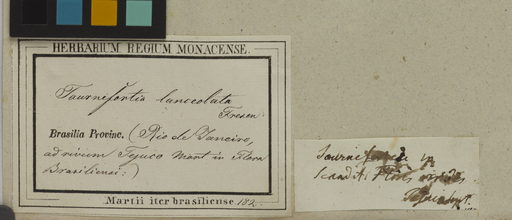 HERBARIUM REGIUM MONACENSE.
Tournefortia lanceolata
Fresen.
Brasilia Provinc. (Rio de Janeiro,
ad rivum Tejuco Mart in Flora
Brasiliensi.)
Martii iter brasiliense 182
Tournefortia
scandit. Flores